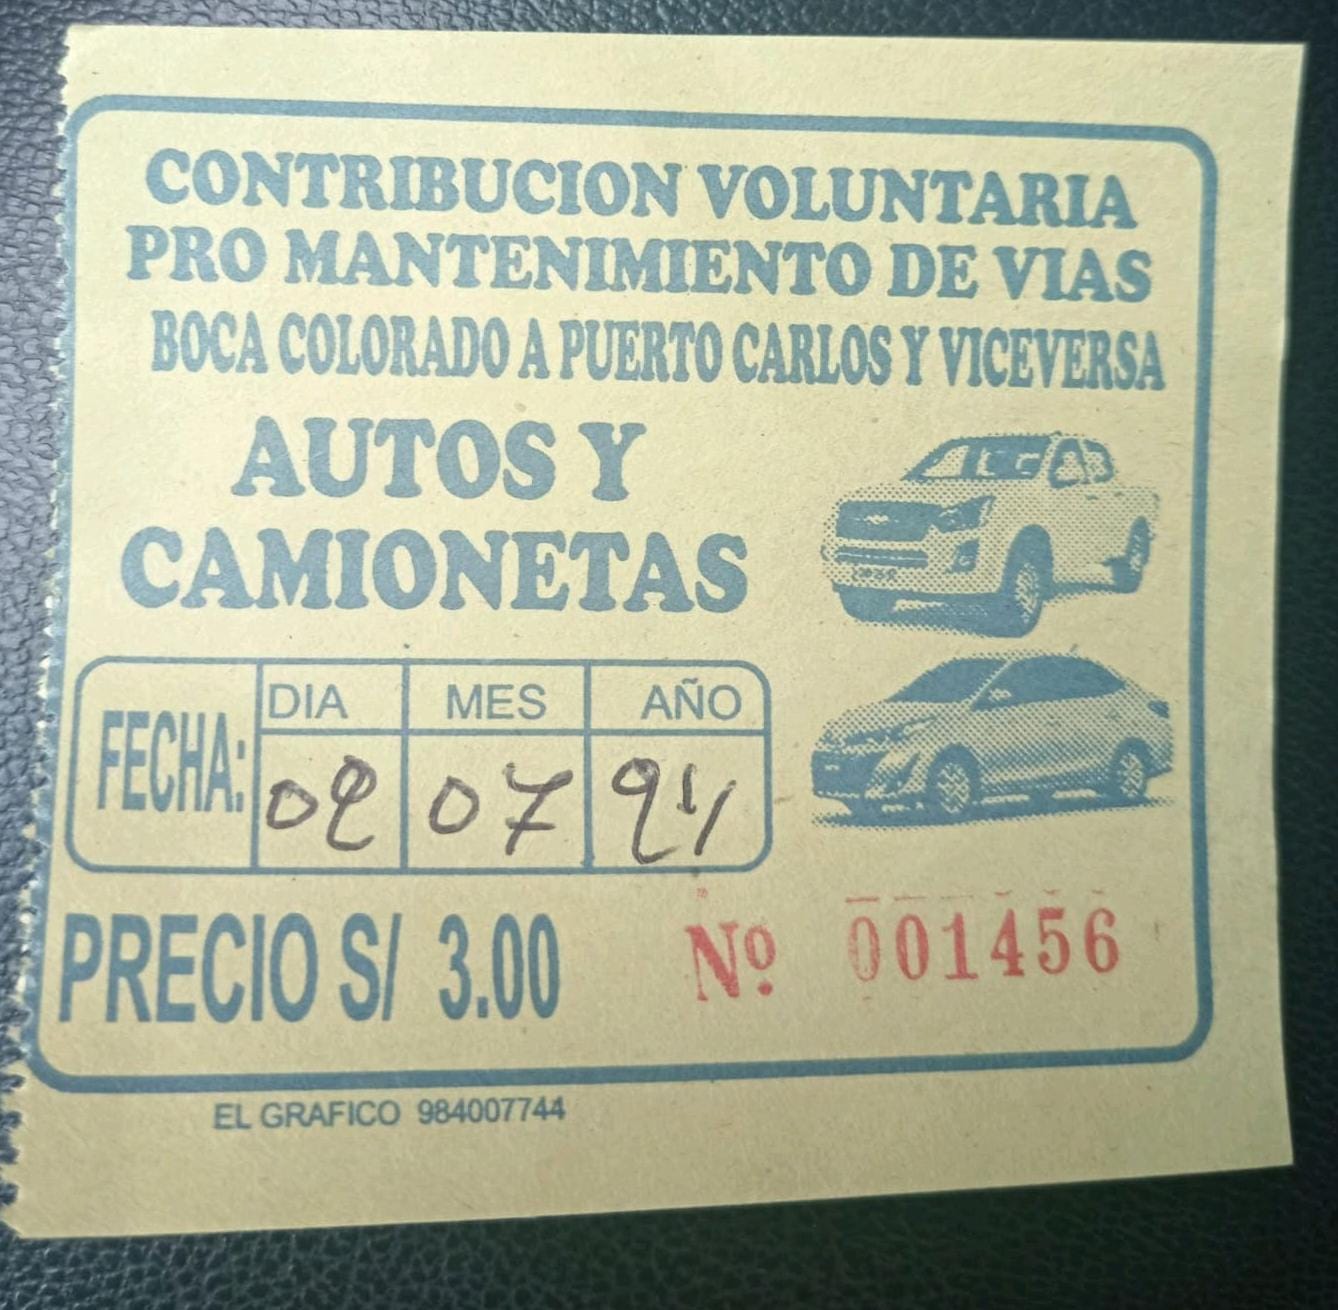 CONTRIBUCION VOLUNTARIA
PRO MANTENIMIENTO DE VIAS
BOCA COLORADO A PUERTO CARLOS Y VICEVERSA
AUTOS Y
CAMIONETAS
FECHA: DIA MES AÑO
02 07 24
PRECIO S/ 3.00 Nº 001456
EL GRAFICO 984007744